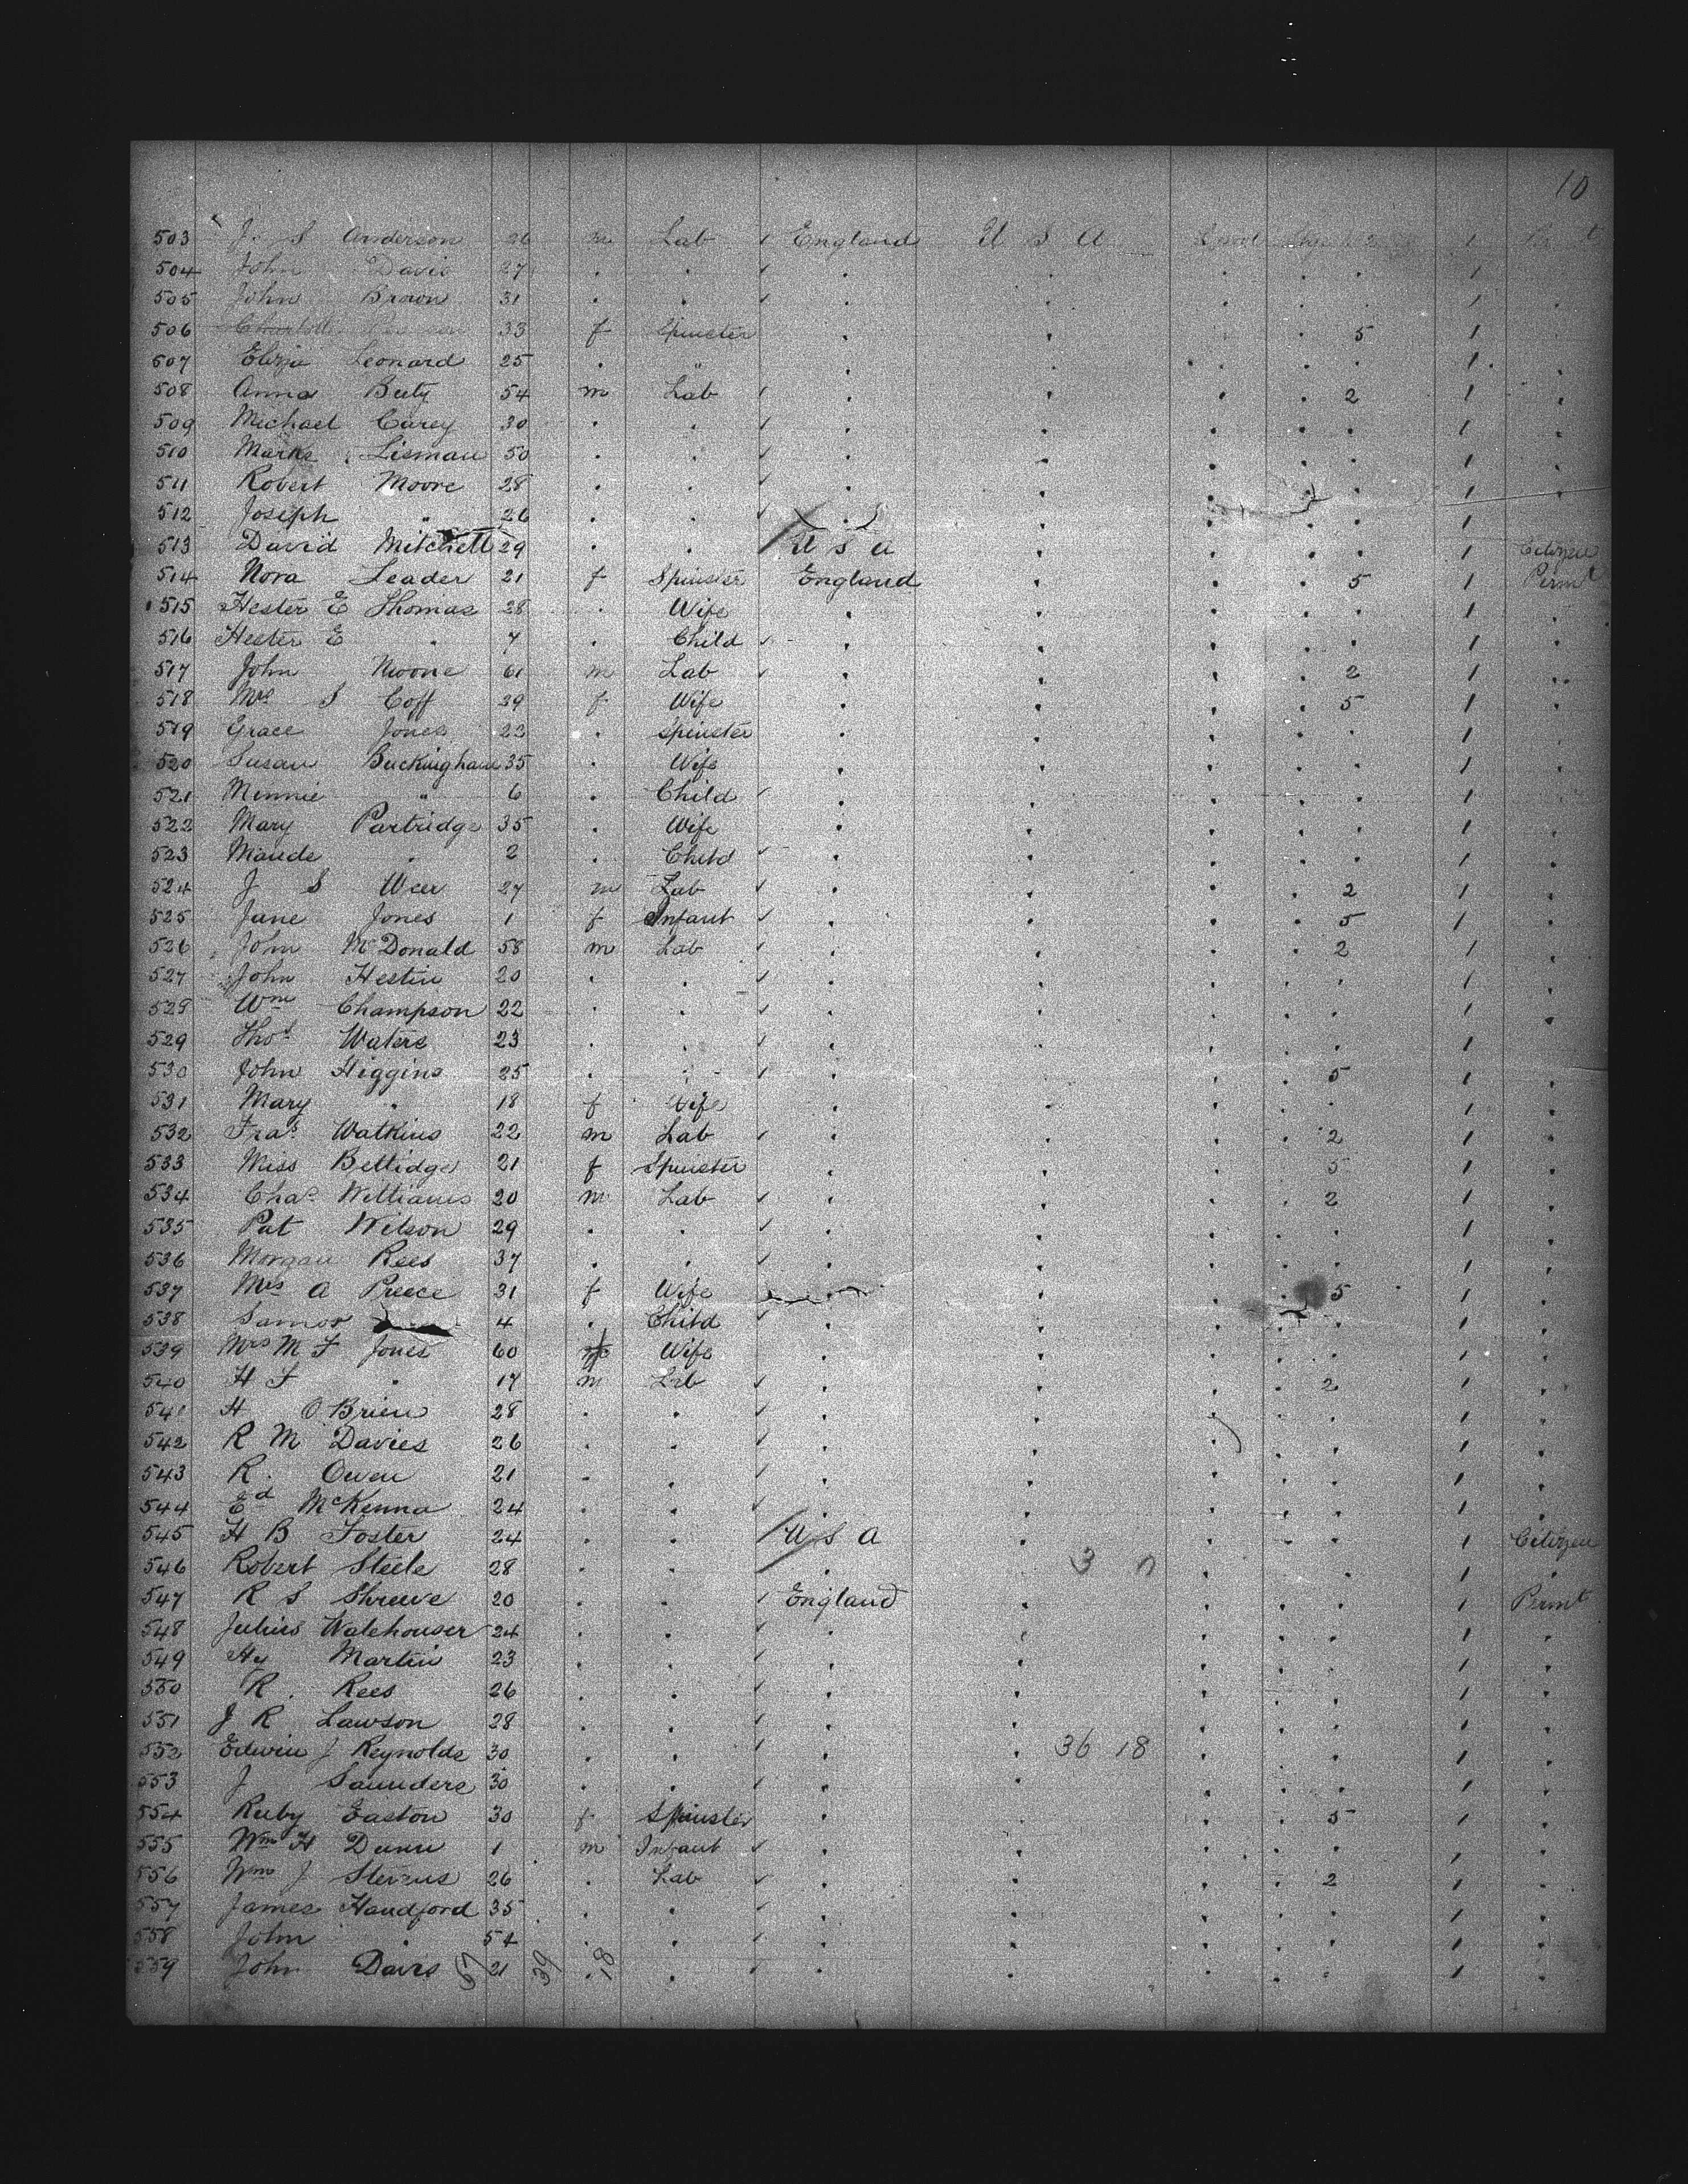 10
503 J. S Anderson 26 m Lab ✓ England U S A 1
504 John Davis 27 . . ✓ . . . . . 1 .
505 John Brown 31 . . ✓ . . . . . 1 .
506 33 f Spinster . . . . 5 1 .
507 Eliza Leonard 25 . " . . . . . 1 .
508 Anna Buty 54 m Lab ✓ . . . . 2 1 .
509 Michael Carey 30 . . ✓ . . . . . 1 .
510 Marks Lisman 50 . . ✓ . . . . . 1 .
511 Robert Moore 28 . . ✓ . . . . . 1 .
512 Joseph " 26 . . ✓ . . . . . 1 .
513 David Mitchell 29 . . U S A . . . . 1 Citizen
514 Nora Leader 21 f Spinster England . . . 5 1 Permt
515 Hester E Thomas 28 . Wife . . . . . 1 .
516 Hester E " 7 . Child ✓ . . . . . 1 .
517 John Moore 61 m Lab ✓ . . . . 2 1 .
518 Mrs S Goff 39 f Wife . . . . 5 1 .
519 Grace Jones 23 . Spinster . . . . . 1 .
520 Susan Buckingham 35 . Wife . . . . . 1 .
521 Minnie " 6 . Child ✓ . . . . . 1 .
522 Mary Partridge 35 . Wife . . . . . 1 .
523 Maude " 2 . Child ✓ . . . . . 1 .
524 J S Weer 27 m Lab ✓ . . . . 2 1 .
525 Jane Jones 1 f Infant ✓ . . . . 5 1 .
526 John McDonald 58 m Lab ✓ . . . . 2 1 .
527 John Hestin 20 . . ✓ . . . . . 1 .
528 Wm Champson 22 . . ✓ . . . . . 1 .
529 Thos Waters 23 . . ✓ . . . . . 1 .
530 John Higgins 25 . . ✓ . . . . 5 1 .
531 Mary " 18 f Wife . . . . . 1 .
532 Fras Watkins 22 m Lab ✓ . . . . 2 1 .
533 Miss Bettidge 21 f Spinster . . . . 5 1 .
534 Chas Williams 20 m Lab ✓ . . . . 2 1 .
535 Pat Wilson 29 . . ✓ . . . . . 1 .
536 Morgan Rees 37 . . ✓ . . . . . 1 .
537 Mrs A Preece 31 f Wife . . . . 5 1 .
538 4 . Child ✓ . . . . . 1 .
539 Mrs M F Jones 60 f Wife . . . . . 1 .
540 H F " 17 m Lab ✓ . . . . 2 1 .
541 H O'Brien 28 . . ✓ . . . . . 1 .
542 R M Davies 26 . . ✓ . . . . . 1 .
543 R. Owen 21 . . ✓ . . . . . 1 .
544 Ed McKenna 24 . . ✓ . . . . . 1 .
545 H B Foster 24 . . U S A . . . . 1 Citizen
546 Robert Steele 28 . . . . . . . 1 .
547 R S Shreeve 20 . . ✓ England . . . . 1 Permt
548 Julius Walehouser 24 . . ✓ . . . . . 1 .
549 Hy Martin 23 . . ✓ . . . . . 1 .
550 R. Rees 26 . . ✓ . . . . . 1 .
551 J R Lawson 28 . . ✓ . . . . . 1 .
552 Edwin J Reynolds 30 . . ✓ . . 36 18 . . . 1 .
553 J Saunders 30 . . ✓ . . . . . 1 .
554 Ruby Easton 30 f Spinster . . . . 5 1 .
555 Wm H Dunn 1 m Infant ✓ . . . . . 1 .
556 Wm J Stevens 26 . Lab ✓ . . . . 2 1 .
557 James Handford 35 . . ✓ . . . . . 1 .
558 John " 54 . . ✓ . . . . . 1 .
559 John Davis 57 21 39 18 . ✓ . . . . . 1 .